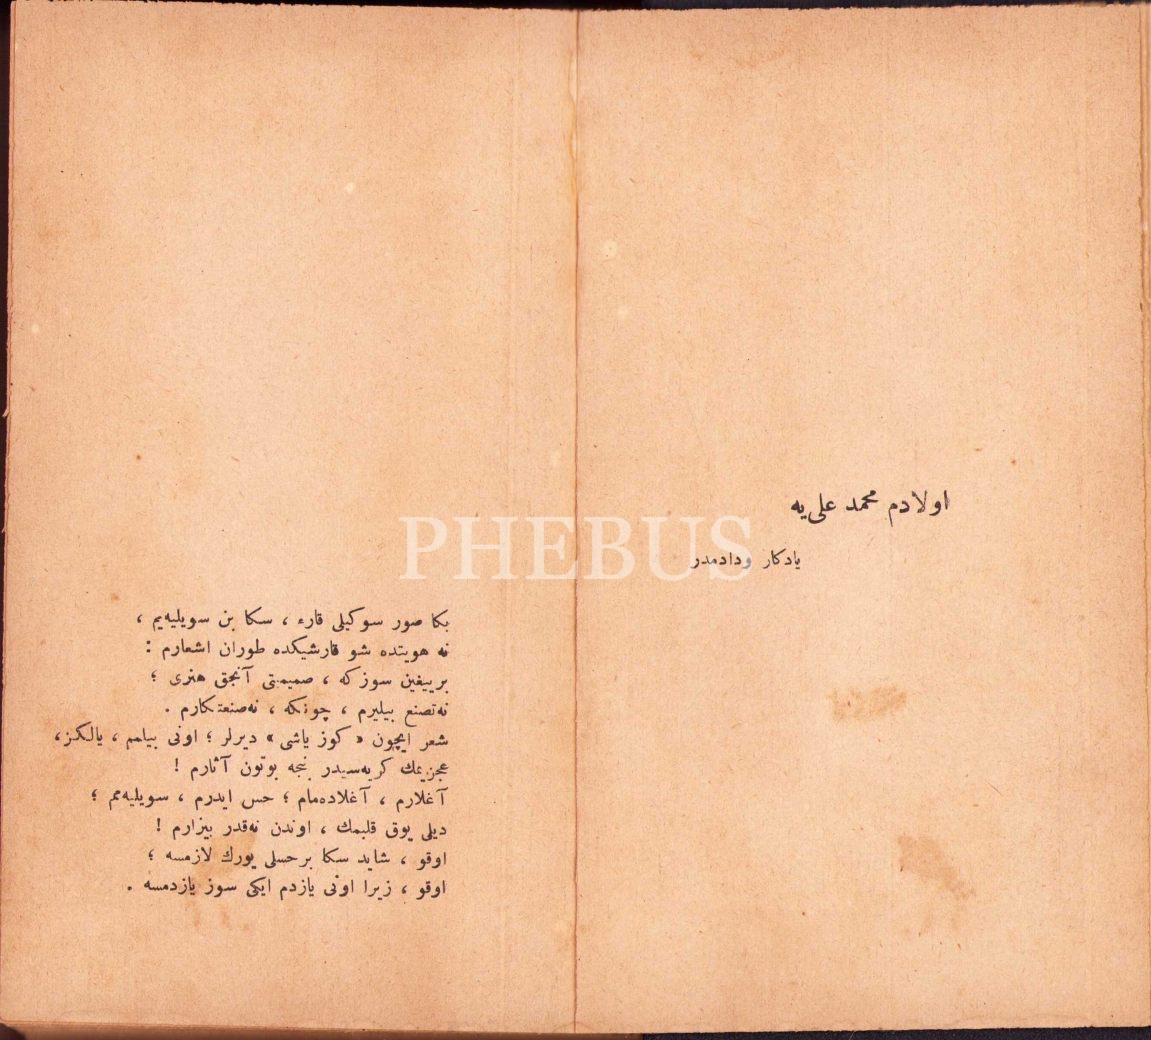 اولادم محمد علی‌یه
یادکار ودادمدر
بکا صور سوکیلی قارء ، سکا بن سویلیه‌یم ،
نه هویتده شو قارشیکده طوران اشعارم :
بر ییغین سوز که ، صمیمیتی آنجق هنری ؛
نه‌تصنع بیلیرم ، چونکه ، نه‌صنعتکارم .
شعر ایچون « کوز یاشی » دیرلر ؛ اونی بیلمم ، یالکز،
عجزیمك کریه‌سیدر بنجه بوتون آثارم !
آغلارم ، آغلاده‌مام ؛ حس ایدرم ، سویلیه‌مم ؛
دیلی یوق قلبمك ، اوندن نه‌قدر بیزارم !
اوقو ، شاید سکا بر حسلی یورك لازمسه ؛
اوقو ، زیرا اونی یازدم ایکی سوز یازدمسه .
PHEBUS